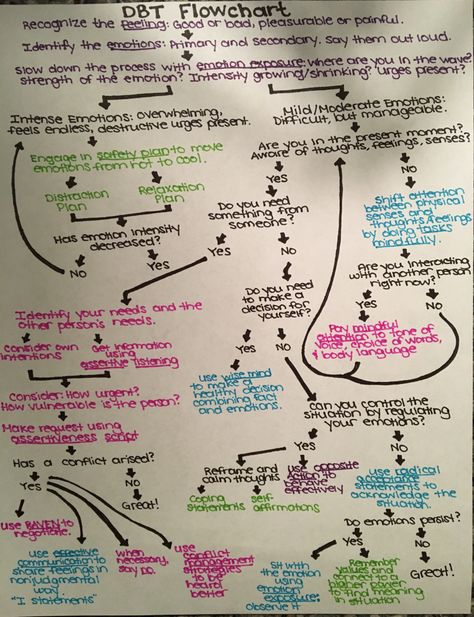 DBT Flowchart
Recognize the feeling: Good or bad, pleasurable or painful.
Identify the emotions: Primary and secondary. Say them out loud.
Slow down the process with emotion exposure: where are you in the wave?
strength of the emotion? Intensity growing/shrinking? Urges present?
Intense Emotions: overwhelming,
feels endless, destructive urges present.
Engage in safety plan to move
emotions from hot to cool.
Distraction
Plan
Relaxation
Plan
Has emotion intensity
decreased?
NO
Yes
Mild/Moderate Emotions:
Difficult, but manageable.
Are you in the present moment?
Aware of thoughts, feelings, senses?
Yes
NO
Do you need
something from
someone?
Yes
NO
Shift attention
between physical
senses and
thoughts & feelings
by doing tasks
mindfully.
Are you interacting
with another person
right now?
Yes
NO
Pay mindful
attention to tone of
voice, choice of words,
& body language
Identify your needs and the
other person's needs.
Consider own
intentions
Get information
using
assertive listening
Consider: How urgent?
How vulnerable is the person?
Make request using
assertiveness script
Has a conflict arised?
Yes
NO
Great!
use RAVEN to
negotiate.
use effective
communication to
share feelings in
nonjudgmental
way.
"I statements"
when
necessary,
say no.
use
conflict
management
strategies
to be
heard
better
Do you need
to make a
decision for
yourself?
Yes
NO
use wise mind
to make a
healthy decision
combining fact
and emotions.
Can you control the
situation by regulating
your emotions?
Yes
NO
Reframe and
calm thoughts
Coping
statements
self-
affirmations
use opposite
action to
behave
effectively
use radical
acceptance
statements to
acknowledge the
situation.
Do emotions persist?
Yes
NO
Great!
Sit with
the emotion
using
emotion
exposure:
observe it
Remember
values and
connect to a
higher power
to find meaning
in situation